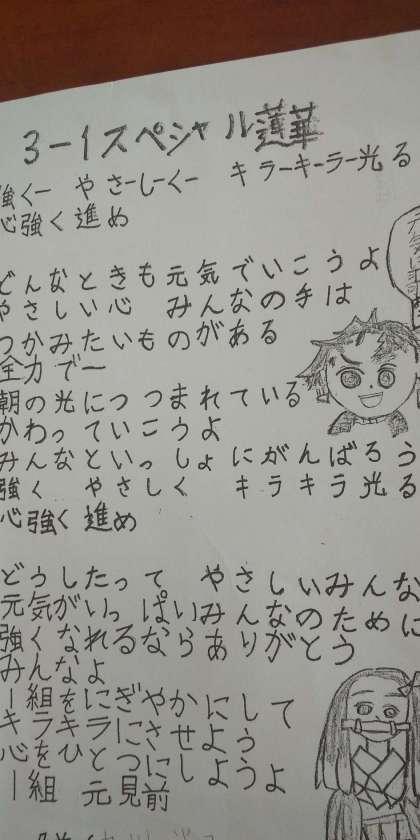 3-1スペシャル蓮華
強くー やさーしーくー キラーキーラー光る
心強く進め
どんなときも元気でいこうよ
やさしい心 みんなの手は
つかみたいものがある
全力でー
朝の光につつまれている
かわっていこうよ
みんなといっしょにがんばろう
強く やさしく キラキラ光る
心強く進め
どうしたって やさしいみんな
元気がいっぱいみんなのために
強くなれるならありがとう
みんなよ
一組をにぎやかにして
キラキラにさせよう
心をひとつにしようよ
一組 元見前